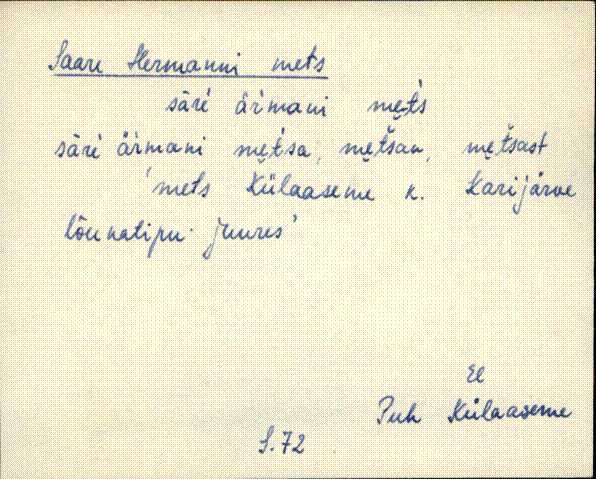 Saare Hermanni mets
sāre' är̀mani mȩt̀s
sāre' är̀mani mȩt̀sa, mȩt̆san, mȩt̆sast
'mets Külaaseme k. Karijärve
lõunatipu juures'
El
Puh Külaaseme
S.72